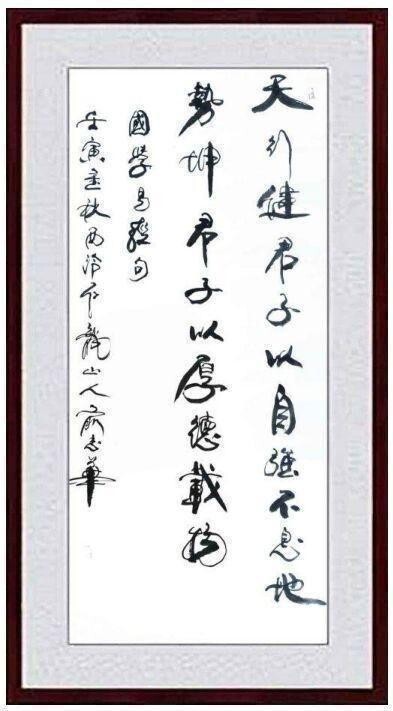 天行健君子以自強不息地
勢坤君子以厚德載物
國學易經句
壬寅孟秋西泠龍山人俞志華